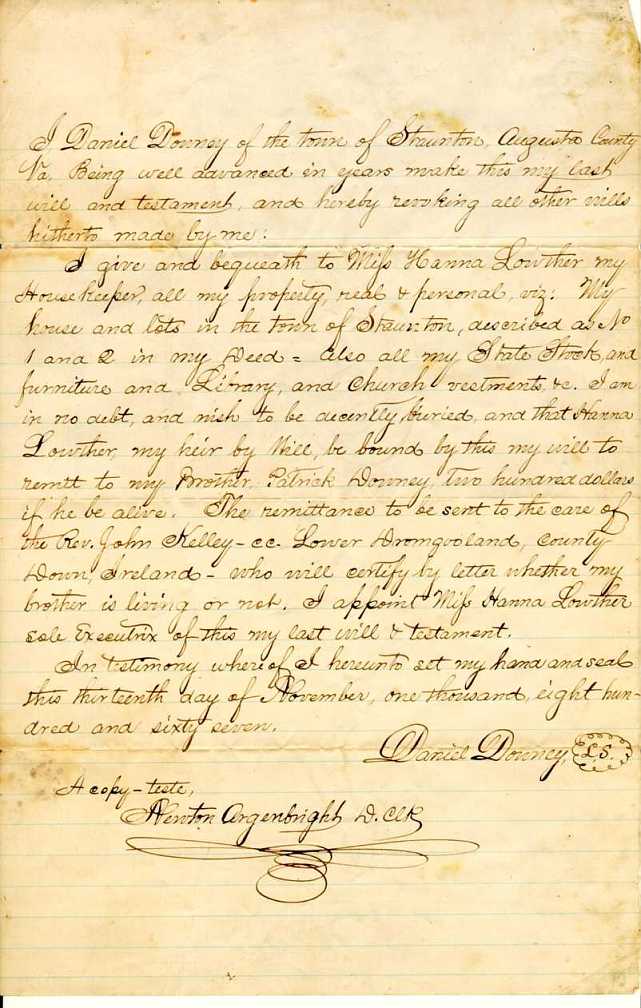 I Daniel Downey of the town of Staunton, Augusta County
Va, Being well advanced in years make this my last
will and testament, and hereby revoking all other wills
hitherto made by me:
I give and bequeath to Miſs Hanna Lowther my
Housekeeper, all my property, real & personal, viz: My
house and lots in the town of Staunton, described as No
1 and 2 in my Deed = also all my State Stock, and
furniture and Library, and Church vestments, &c. I am
in no debt, and wish to be decently buried, and that Hanna
Lowther, my heir by Will, be bound by this my will to
remitt to my Brother, Patrick Downey, two hundred dollars
if he be alive. The remittance to be sent to the care of
the Rev. John Kelley - cc. Lower Dromgooland, County
Down, Ireland - who will certify by letter whether my
brother is living or not. I appoint Miſs Hanna Lowther
sole Executrix of this my last will & testament.
In testimony whereof I hereunto set my hand and seal
this thirteenth day of November, one thousand, eight hun-
dred and sixty seven.
Daniel Downey, L.S.
A copy - teste,
Newton Argenbright D. Clk